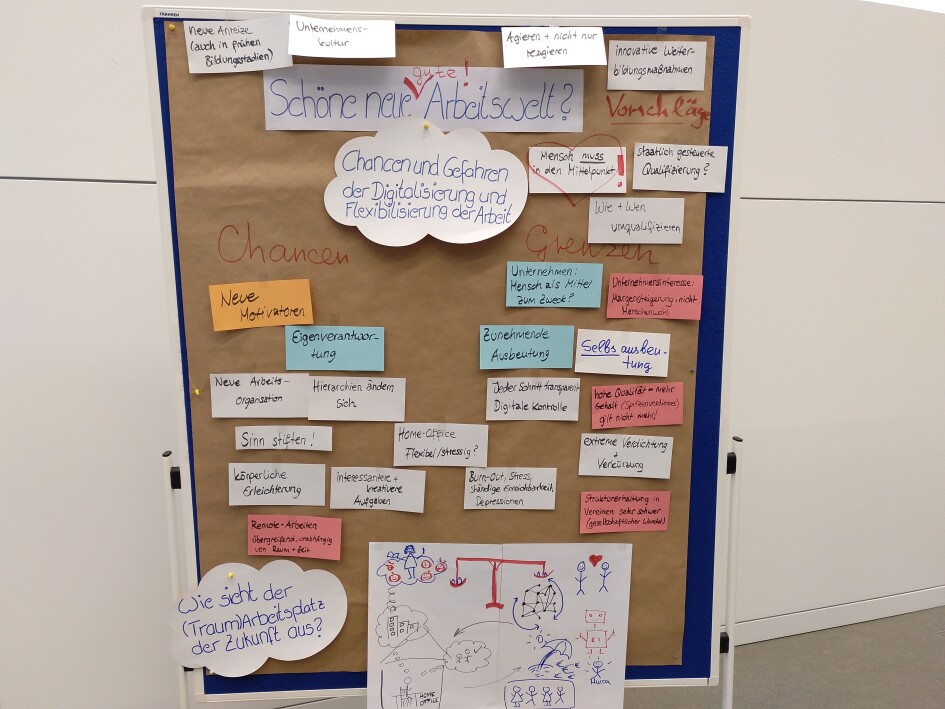 FRANKEN
Neue Anreize
(auch in frühen
Bildungsstadien)
Unternehmens-
kultur
Agieren + nicht nur
reagieren
innovative Weiter-
bildungsmaßnahmen
gute!
Schöne neue Arbeitswelt?
Vorschläge
Chancen und Gefahren
der Digitalisierung und
Flexibilisierung der Arbeit
Mensch muss
in den Mittelpunkt!
staatlich gesteuerte
Qualifizierung?
Wie + Wen
umqualifizieren
Chancen
Grenzen
Neue
Motivatoren
Eigenverantwor-
tung
Neue Arbeits-
organisation
Hierarchien ändern
sich
Sinn stiften!
Home-Office
Flexibel/stressig?
körperliche
Erleichterung
interessantere +
kreativere
Aufgaben
Remote-Arbeiten
übergreifend, unabhängig
von Raum + Zeit
Unternehmen:
Mensch als Mittel
zum Zweck?
Unternehmerinteresse:
Margensteigerung, nicht
Menschenwohl
Zunehmende
Ausbeutung
Selbsausbeu-
tung
Jeder Schritt transparent
Digitale Kontrolle
hohe Qualität = mehr
Gehalt (Spitzenverdienst)
gilt nicht mehr!
extreme Verdichtung
+
Verkürzung
Burn-Out, Stress,
ständige Erreichbarkeit,
Depressionen
Strukturerhaltung in
Vereinen sehr schwer
(gesellschaftlicher Wandel)
Wie sieht der
(Traum)Arbeitsplatz
der Zukunft aus?
HOME
OFFICE
KI